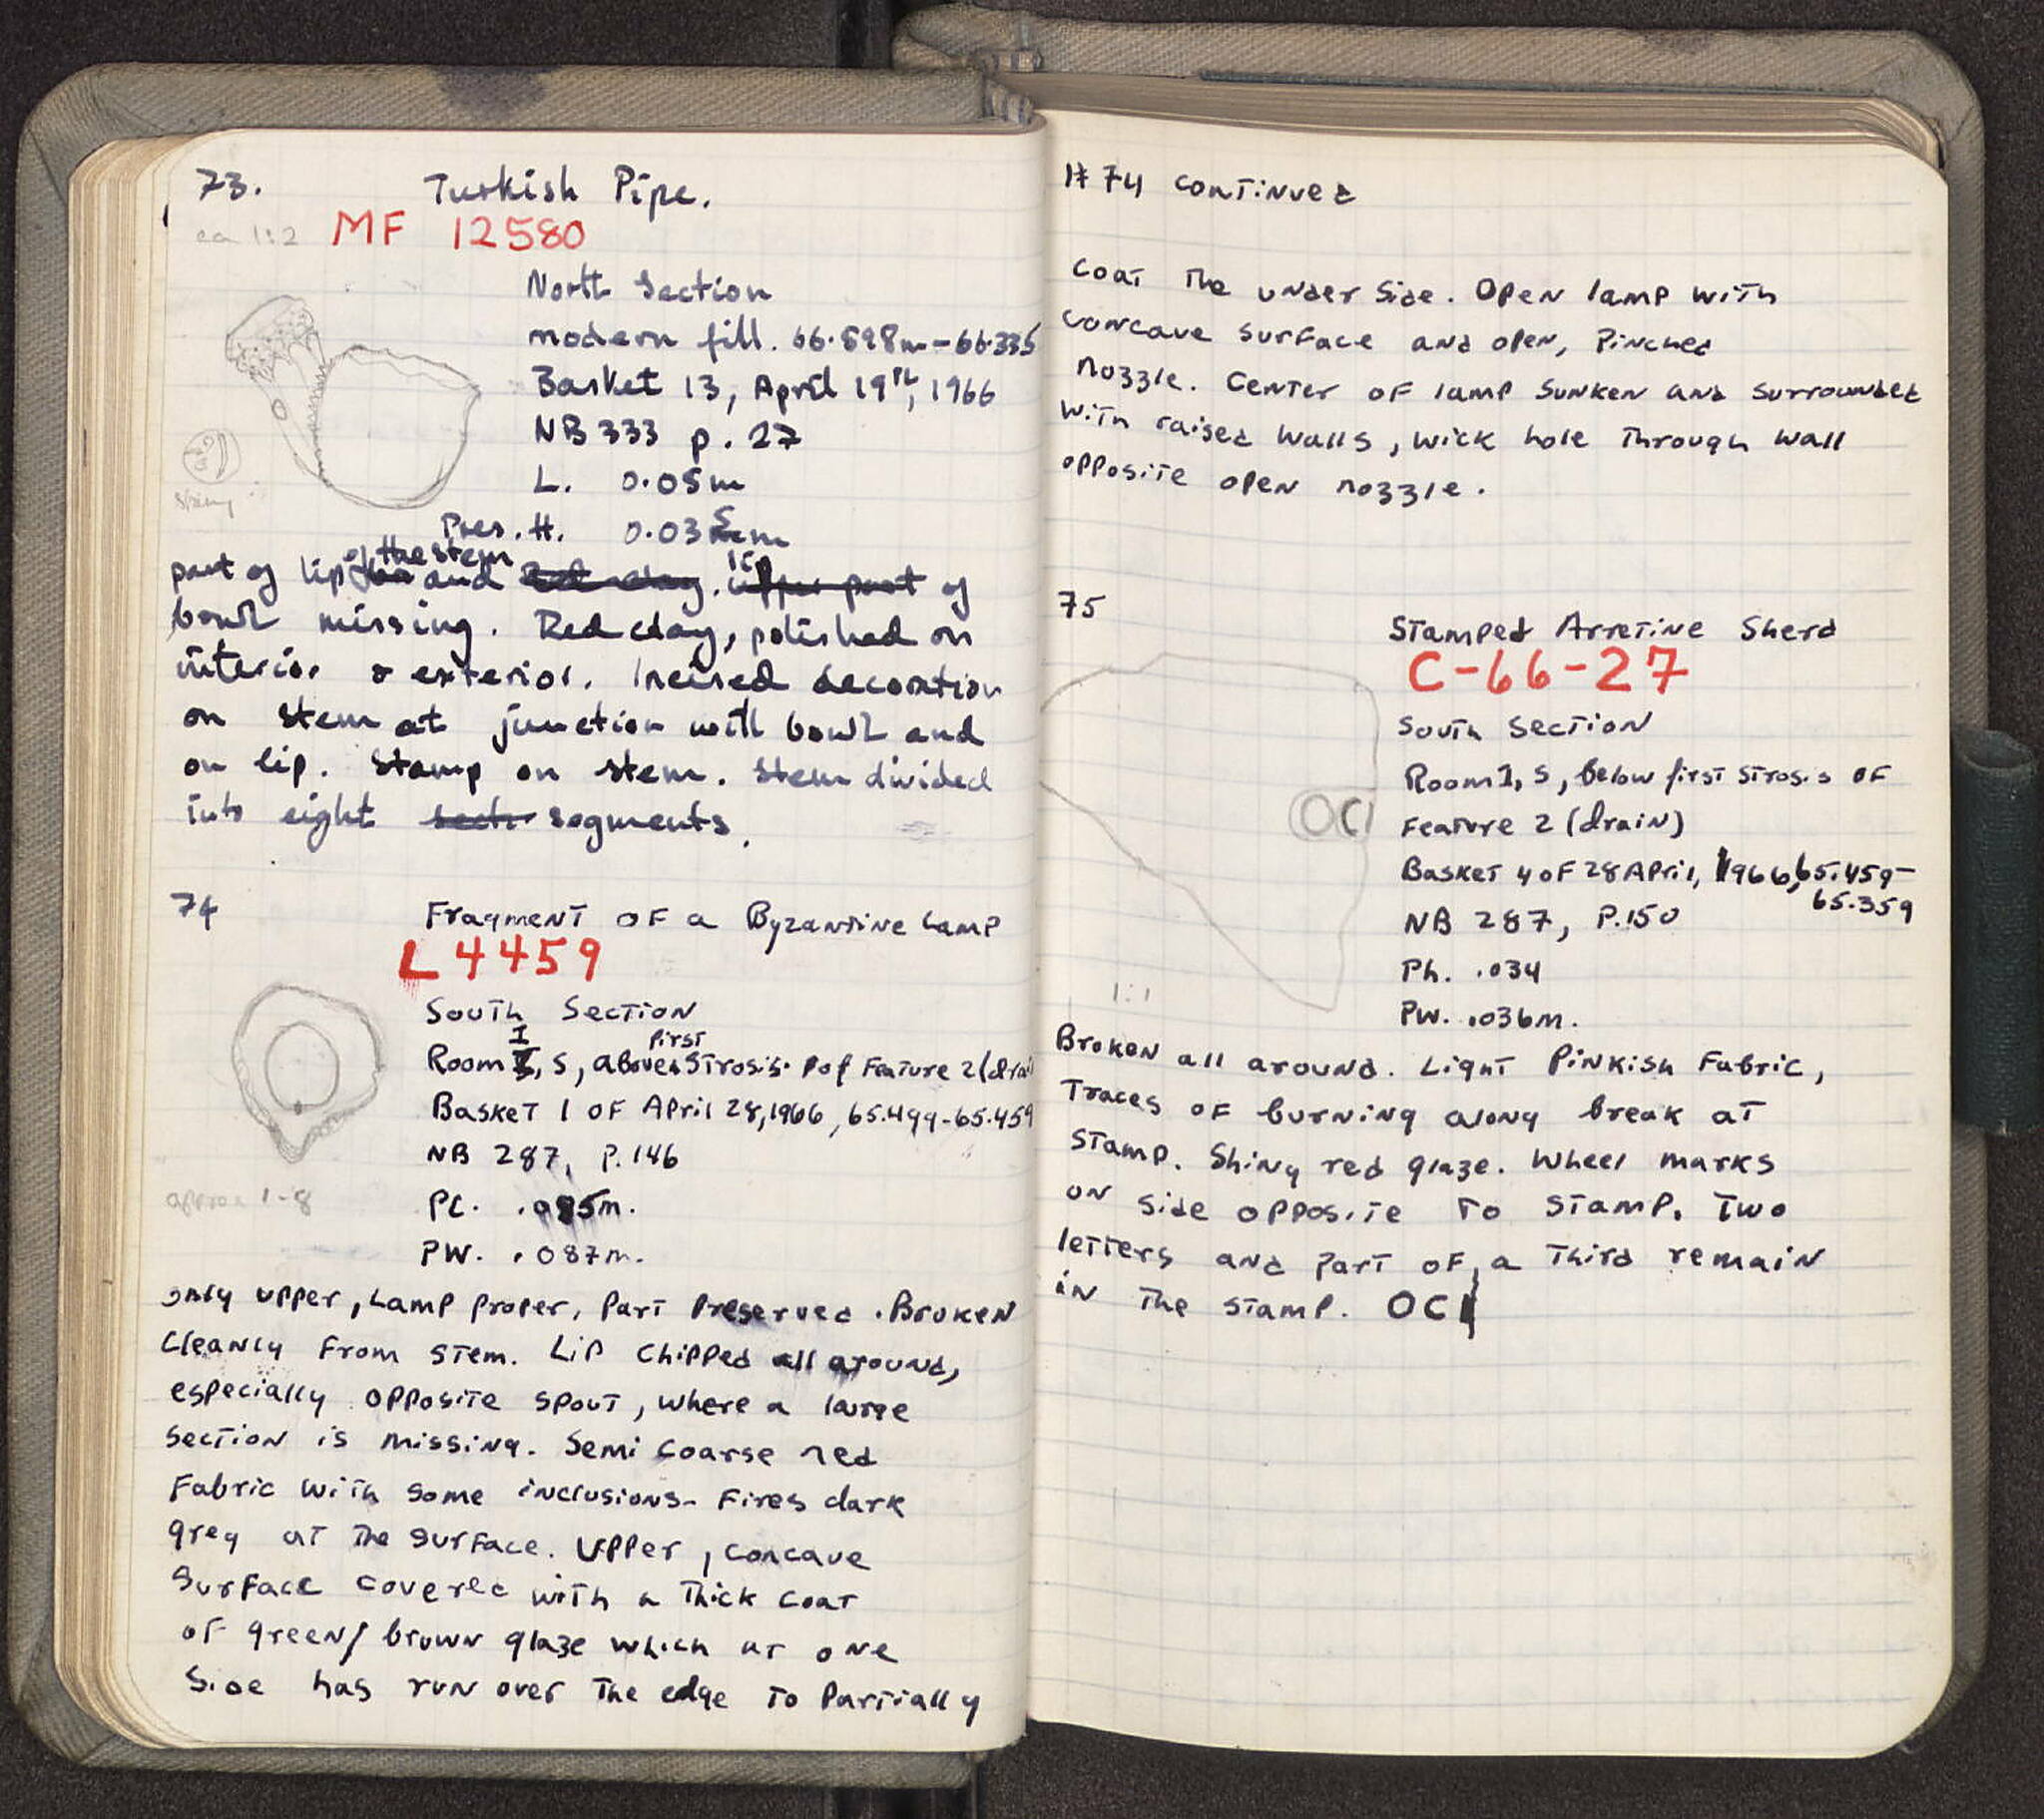 73. Turkish Pipe.
ca 1:2 MF 12580
North Section
modern fill. 66.898m-66.335
Basket 13, April 19th, 1966
NB 333 p. 27
L. 0.05m
Pres. H. 0.035m
part of lip of the stem and lip of
bowl missing. Red clay, polished on
interior & exterior. Incised decoration
on stem at junction with bowl and
on lip. Stamp on stem. Stem divided
into eight segments.
74 Fragment of a Byzantine Lamp
L 4459
South Section
Room I, S, above first strosis of Feature 2 (drai
Basket 1 of April 28, 1966, 65.499-65.459
NB 287, P. 146
approx 1-8
PL. .085m.
PW. .087m.
only upper, Lamp proper, part preserved. Broken
cleanly from stem. Lip chipped all around,
especially opposite spout, where a large
section is missing. Semi coarse red
Fabric with some inclusions- Fires dark
grey at the surface. Upper, concave
surface covered with a thick coat
of green/brown glaze which at one
side has run over the edge to partially
# 74 continued
coat the under side. Open lamp with
concave surface and open, pinched
nozzle. Center of lamp sunken and surrounded
with raised walls, wick hole through wall
opposite open nozzle.
75
Stamped Arretine Sherd
C-66-27
South Section
Room I, S, below first strosis of
Feature 2 (drain)
OC
Basket 4 of 28 April, 1966, 65.459-
65.359
NB 287, P.150
Ph. .034
1:1
PW. .036m.
Broken all around. Light Pinkish Fabric,
Traces of burning along break at
stamp. Shiny red glaze. Wheel marks
on side opposite to stamp. Two
letters and part of a third remain
in the stamp. OCI